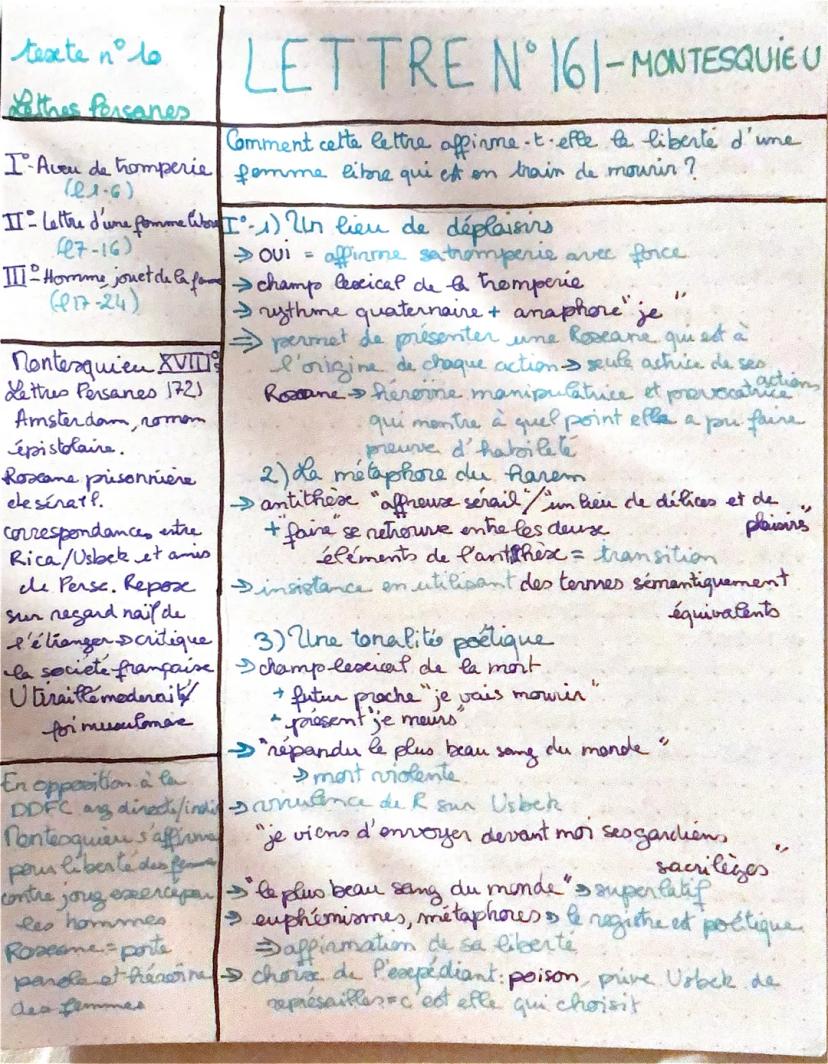 texte n° 10
Lettres Persanes
LETTRE N° 161 - MONTESQUIEU
I° - Aveu de tromperie
(l1-6)
II° - Lettre d'une femme libre
(l7-16)
III° - Homme, jouet de la femme
(l17-24)
Montesquieu XVIII°
Lettres Persanes 1721
Amsterdam, roman
épistolaire.
Roxane prisonnière
de sérail.
correspondances entre
Rica/Usbek et amis
de Perse. Repose
sur regard naïf de
l'étranger → critique
la société française
U tiraillé modernité/
foi musulmane
En opposition à la
DDFC arg directe/indi
Montesquieu s'affirme
pour liberté des femmes
contre joug exercé par
les hommes
Roxane = porte
parole et héroïne
des femmes
Comment cette lettre affirme-t-elle la liberté d'une
femme libre qui est en train de mourir ?
I° - 1) Un lieu de déplaisirs
→ OUI = affirme sa tromperie avec force
→ champ lexical de la tromperie
→ rythme quaternaire + anaphore "je"
⇒ permet de présenter une Roxane qui est à
l'origine de chaque action → seule actrice de ses
actions
Roxane → héroïne manipulatrice et provocatrice
qui montre à quel point elle a pu faire
preuve d'habileté
2) La métaphore du harem
→ antithèse "affreux sérail"/"un lieu de délices et de
plaisirs"
+ "faire" se retrouve entre les deux
éléments de l'antithèse = transition
→ insistance en utilisant des termes sémantiquement
équivalents
3) Une tonalité poétique
→ champ lexical de la mort
+ futur proche "je vais mourir"
+ présent "je meurs"
→ "répandu le plus beau sang du monde"
→ mort violente
→ virulence de R sur Usbek
"je viens d'envoyer devant moi ses gardiens
sacrilèges"
→ "le plus beau sang du monde" → superlatif
→ euphémismes, métaphores → le registre est poétique
⇒ affirmation de sa liberté
→ choix de l'expédiant : poison, prive Usbek de
représailles = c'est elle qui choisit